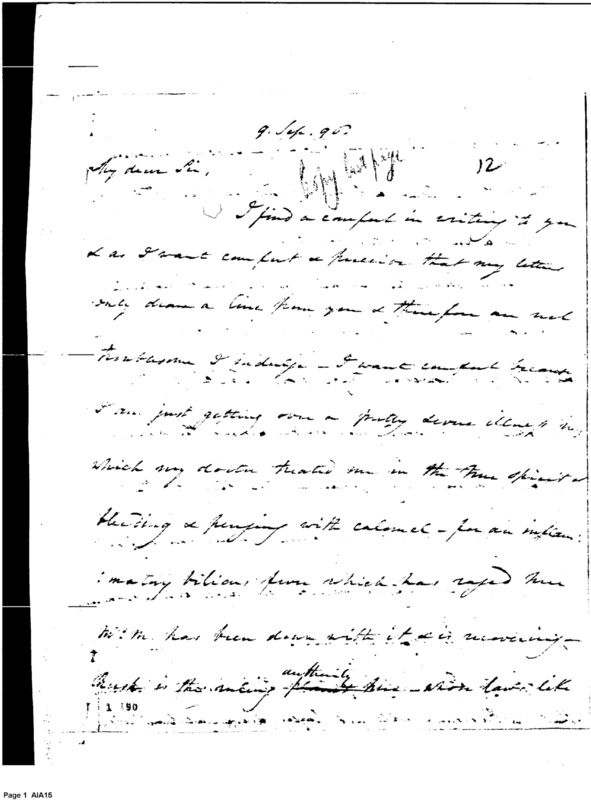 9. Sep. 90.
Copy last page
12
My dear Sir,
I find a comfort in writing to you
& as I want comfort & perceive that my letters
only draw a line from you & therefore are not
troublesome I indulge - I want comfort because
I am just getting over a pretty severe illness in
which my doctor treated me in the true spirit of
bleeding & purging with calomel - for an inflam:
:matory bilious fever which has raged here
Mrs. M. has been down with it & is recovering -
Rush is the ruling authority here - whose laws like
1 90
Page 1 AIA15